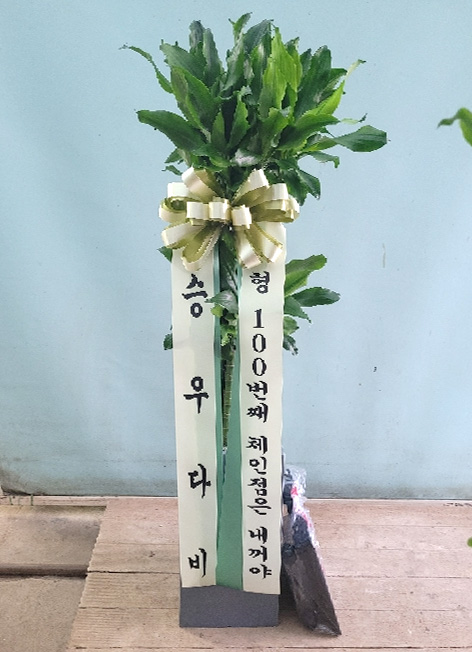 승우다비
형 100번째 체인점은 내꺼야